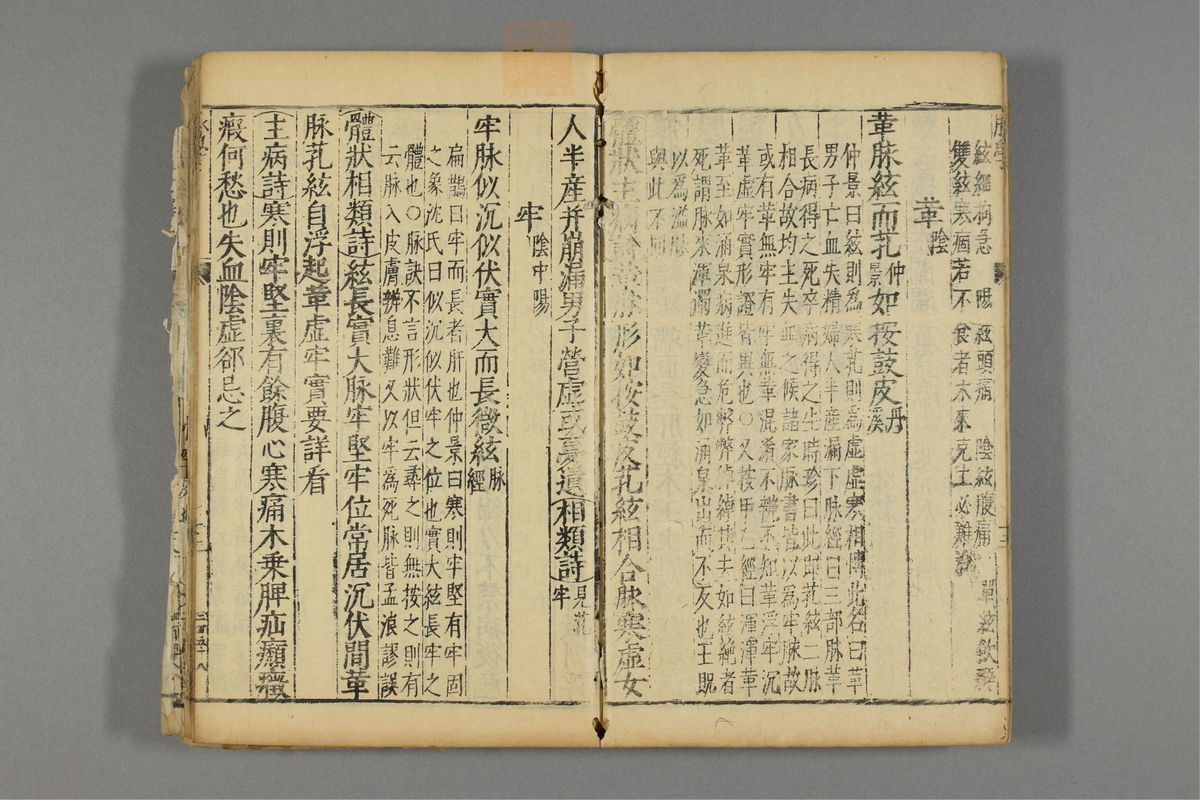 弦緊病急　陽弦頭痛　陰弦腹痛　單弦飲癖
雙弦寒痼若不食者木來克土必難治
革陰
革脉弦而芤仲景如按鼓皮丹溪
仲景曰弦則為寒芤則為虛虛寒相摶此名曰革
男子亡血失精婦人半產漏下脉經曰三部脉革
長病得之死卒病得之生時珍曰此即芤弦二脉
相合故均主失血之候諸家脉書皆以為牢脉故
或有革無牢有牢無革混淆不辨不知革浮牢沉
革虛牢實形證皆異也○又按甲乙經曰渾渾革
革至如涌泉病進而危弊弊綽綽其去如弦絕者
死謂脉來渾濁革變急如涌泉出而不反也王貺
以為溢脉
與此不同
體狀主病詩革脉形如按鼓皮芤弦相合脉寒虛女
人半産并崩漏男子營虛或夢遺相類詩見芤牢
牢陰中陽
牢脉似沉似伏實大而長微弦脉經
扁鵲曰牢而長者肝也仲景曰寒則牢堅有牢固
之象沈氏曰似沉似伏牢之位也實大弦長牢之
體也○脉訣不言形狀但云尋之則無按之則有
云脉入皮膚辨息難又以牢為死脉皆孟浪謬誤
體狀相類詩弦長實大脉牢堅牢位常居沉伏間革
脉芤弦自浮起革虛牢實要詳看
主病詩寒則牢堅裏有餘腹心寒痛木乗脾疝㿗癥
瘕何愁也失血陰虛郤忌之